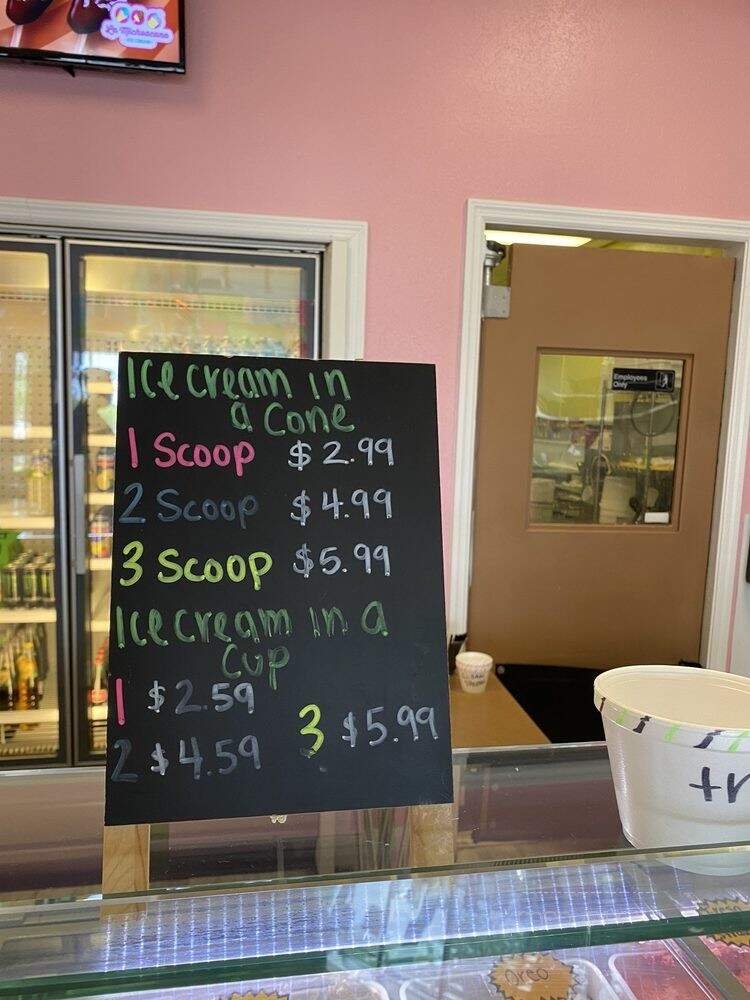 La Michoacana
Employees
Only
Ice cream in
a Cone
1 Scoop $2.99
2 Scoop $4.99
3 Scoop $5.99
Ice cream in a
Cup
1 $2.59
2 $4.59
3 $5.99
tr
oreo